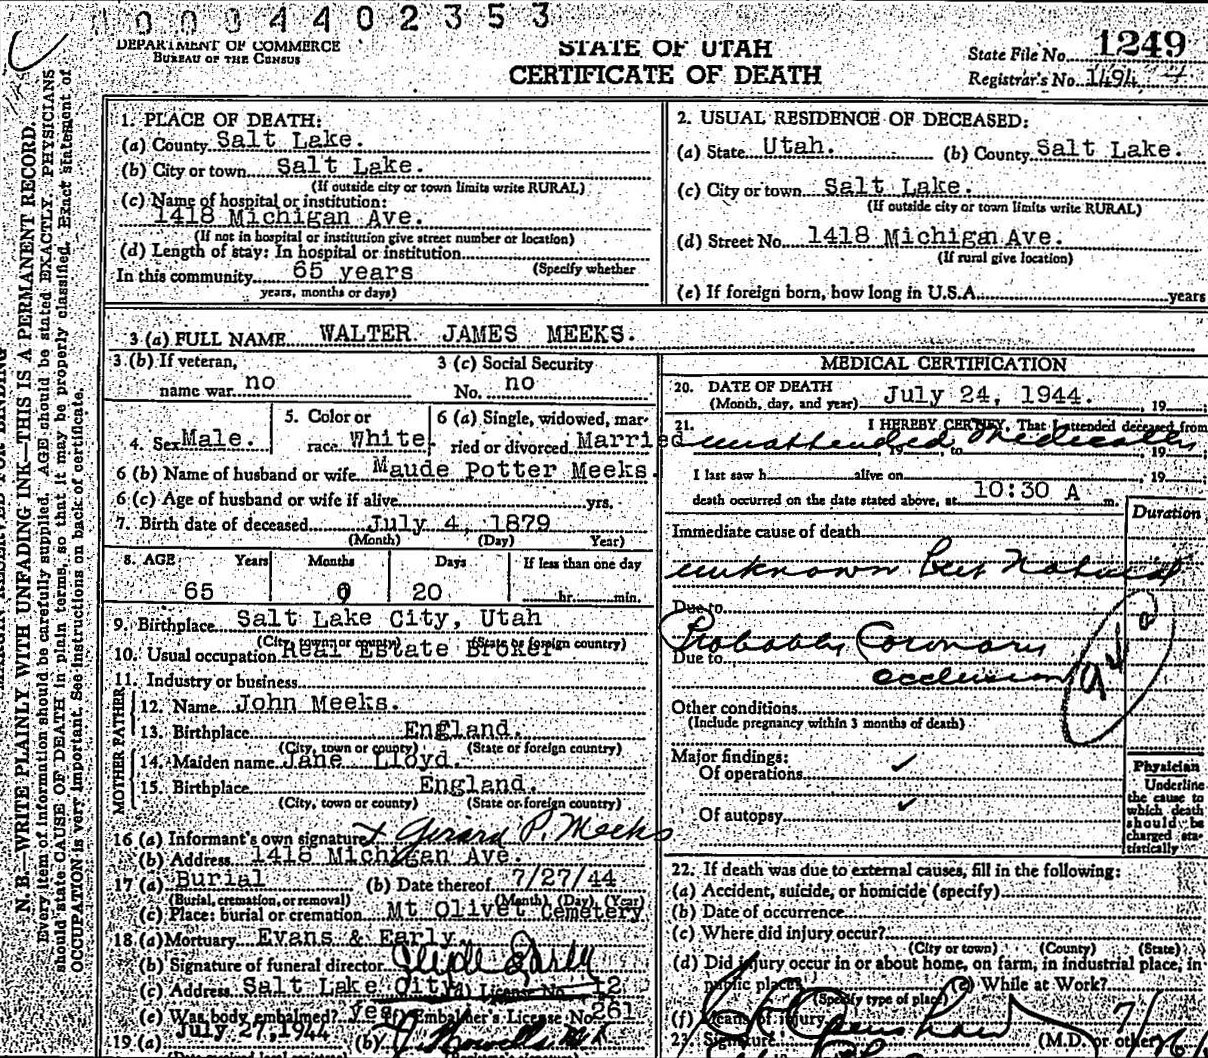 0 0 0 4 4 0 2 3 5 3
DEPARTMENT OF COMMERCE
BUREAU OF THE CENSUS
STATE OF UTAH
CERTIFICATE OF DEATH
State File No. 1249
Registrar's No. 1494
N. B.—WRITE PLAINLY WITH UNFADING INK—THIS IS A PERMANENT RECORD.
Every item of information should be carefully supplied. AGE should be stated EXACTLY. PHYSICIANS
should state CAUSE OF DEATH in plain terms, so that it may be properly classified. Exact statement of
OCCUPATION is very important. See instructions on back of certificate.
1. PLACE OF DEATH:
(a) County Salt Lake.
(b) City or town Salt Lake.
(If outside city or town limits write RURAL)
(c) Name of hospital or institution:
1418 Michigan Ave.
(If not in hospital or institution give street number or location)
(d) Length of stay: In hospital or institution
In this community 65 years (Specify whether
years, months or days)
2. USUAL RESIDENCE OF DECEASED:
(a) State Utah. (b) County Salt Lake.
(c) City or town Salt Lake.
(If outside city or town limits write RURAL)
(d) Street No. 1418 Michigan Ave.
(If rural give location)
(e) If foreign born, how long in U.S.A. years
3 (a) FULL NAME WALTER JAMES MEEKS.
3.(b) If veteran,
name war no
3 (c) Social Security
No. no
4. Sex Male.
5. Color or
race White
6 (a) Single, widowed, mar-
ried or divorced Married
6 (b) Name of husband or wife Maude Potter Meeks.
6 (c) Age of husband or wife if alive yrs.
7. Birth date of deceased July 4, 1879
(Month) (Day) Year)
8. AGE Years Months Days If less than one day
65 0 20 hr. min.
9. Birthplace Salt Lake City, Utah
(City, town or county) (State or foreign country)
10. Usual occupation Real Estate Broker
11. Industry or business
FATHER
12. Name John Meeks.
13. Birthplace England.
(City, town or county) (State or foreign country)
MOTHER
14. Maiden name Jane Lloyd.
15. Birthplace England.
(City, town or county) (State or foreign country)
16 (a) Informant's own signature x Gerard P. Meeks
(b) Address 1418 Michigan Ave.
17 (a) Burial (b) Date thereof 7/27/44
(Burial, cremation, or removal) (Month) (Day) (Year)
(c) Place: burial or cremation Mt Olivet Cemetery
18 (a) Mortuary Evans & Early.
(b) Signature of funeral director Clyde Early
(c) Address Salt Lake City (d) License No. 12
(e) Was body embalmed? yes (f) Embalmer's License No. 261
19 (a) July 27, 1944 (b)
MEDICAL CERTIFICATION
20. DATE OF DEATH
(Month, day, and year) July 24, 1944. , 19
21. I HEREBY CERTIFY, That I attended deceased from
unattended Medically
, 19 , to , 19
I last saw h alive on , 19
death occurred on the date stated above, at 10:30 A m.
Duration
Immediate cause of death
unknown but Natural
Due to
Probably Coronary
Due to
occlusion
Other conditions
(Include pregnancy within 3 months of death)
Major findings:
Of operations ✓
Of autopsy ✓
Physician
Underline
the cause to
which death
should be
charged sta-
tistically
22. If death was due to external causes, fill in the following:
(a) Accident, suicide, or homicide (specify)
(b) Date of occurrence
(c) Where did injury occur?
(City or town) (County) (State)
(d) Did injury occur in or about home, on farm, in industrial place, in
public place (e) While at Work?
(Specify type of place)
(f) Means of injury
23. Signature (M.D. or other)